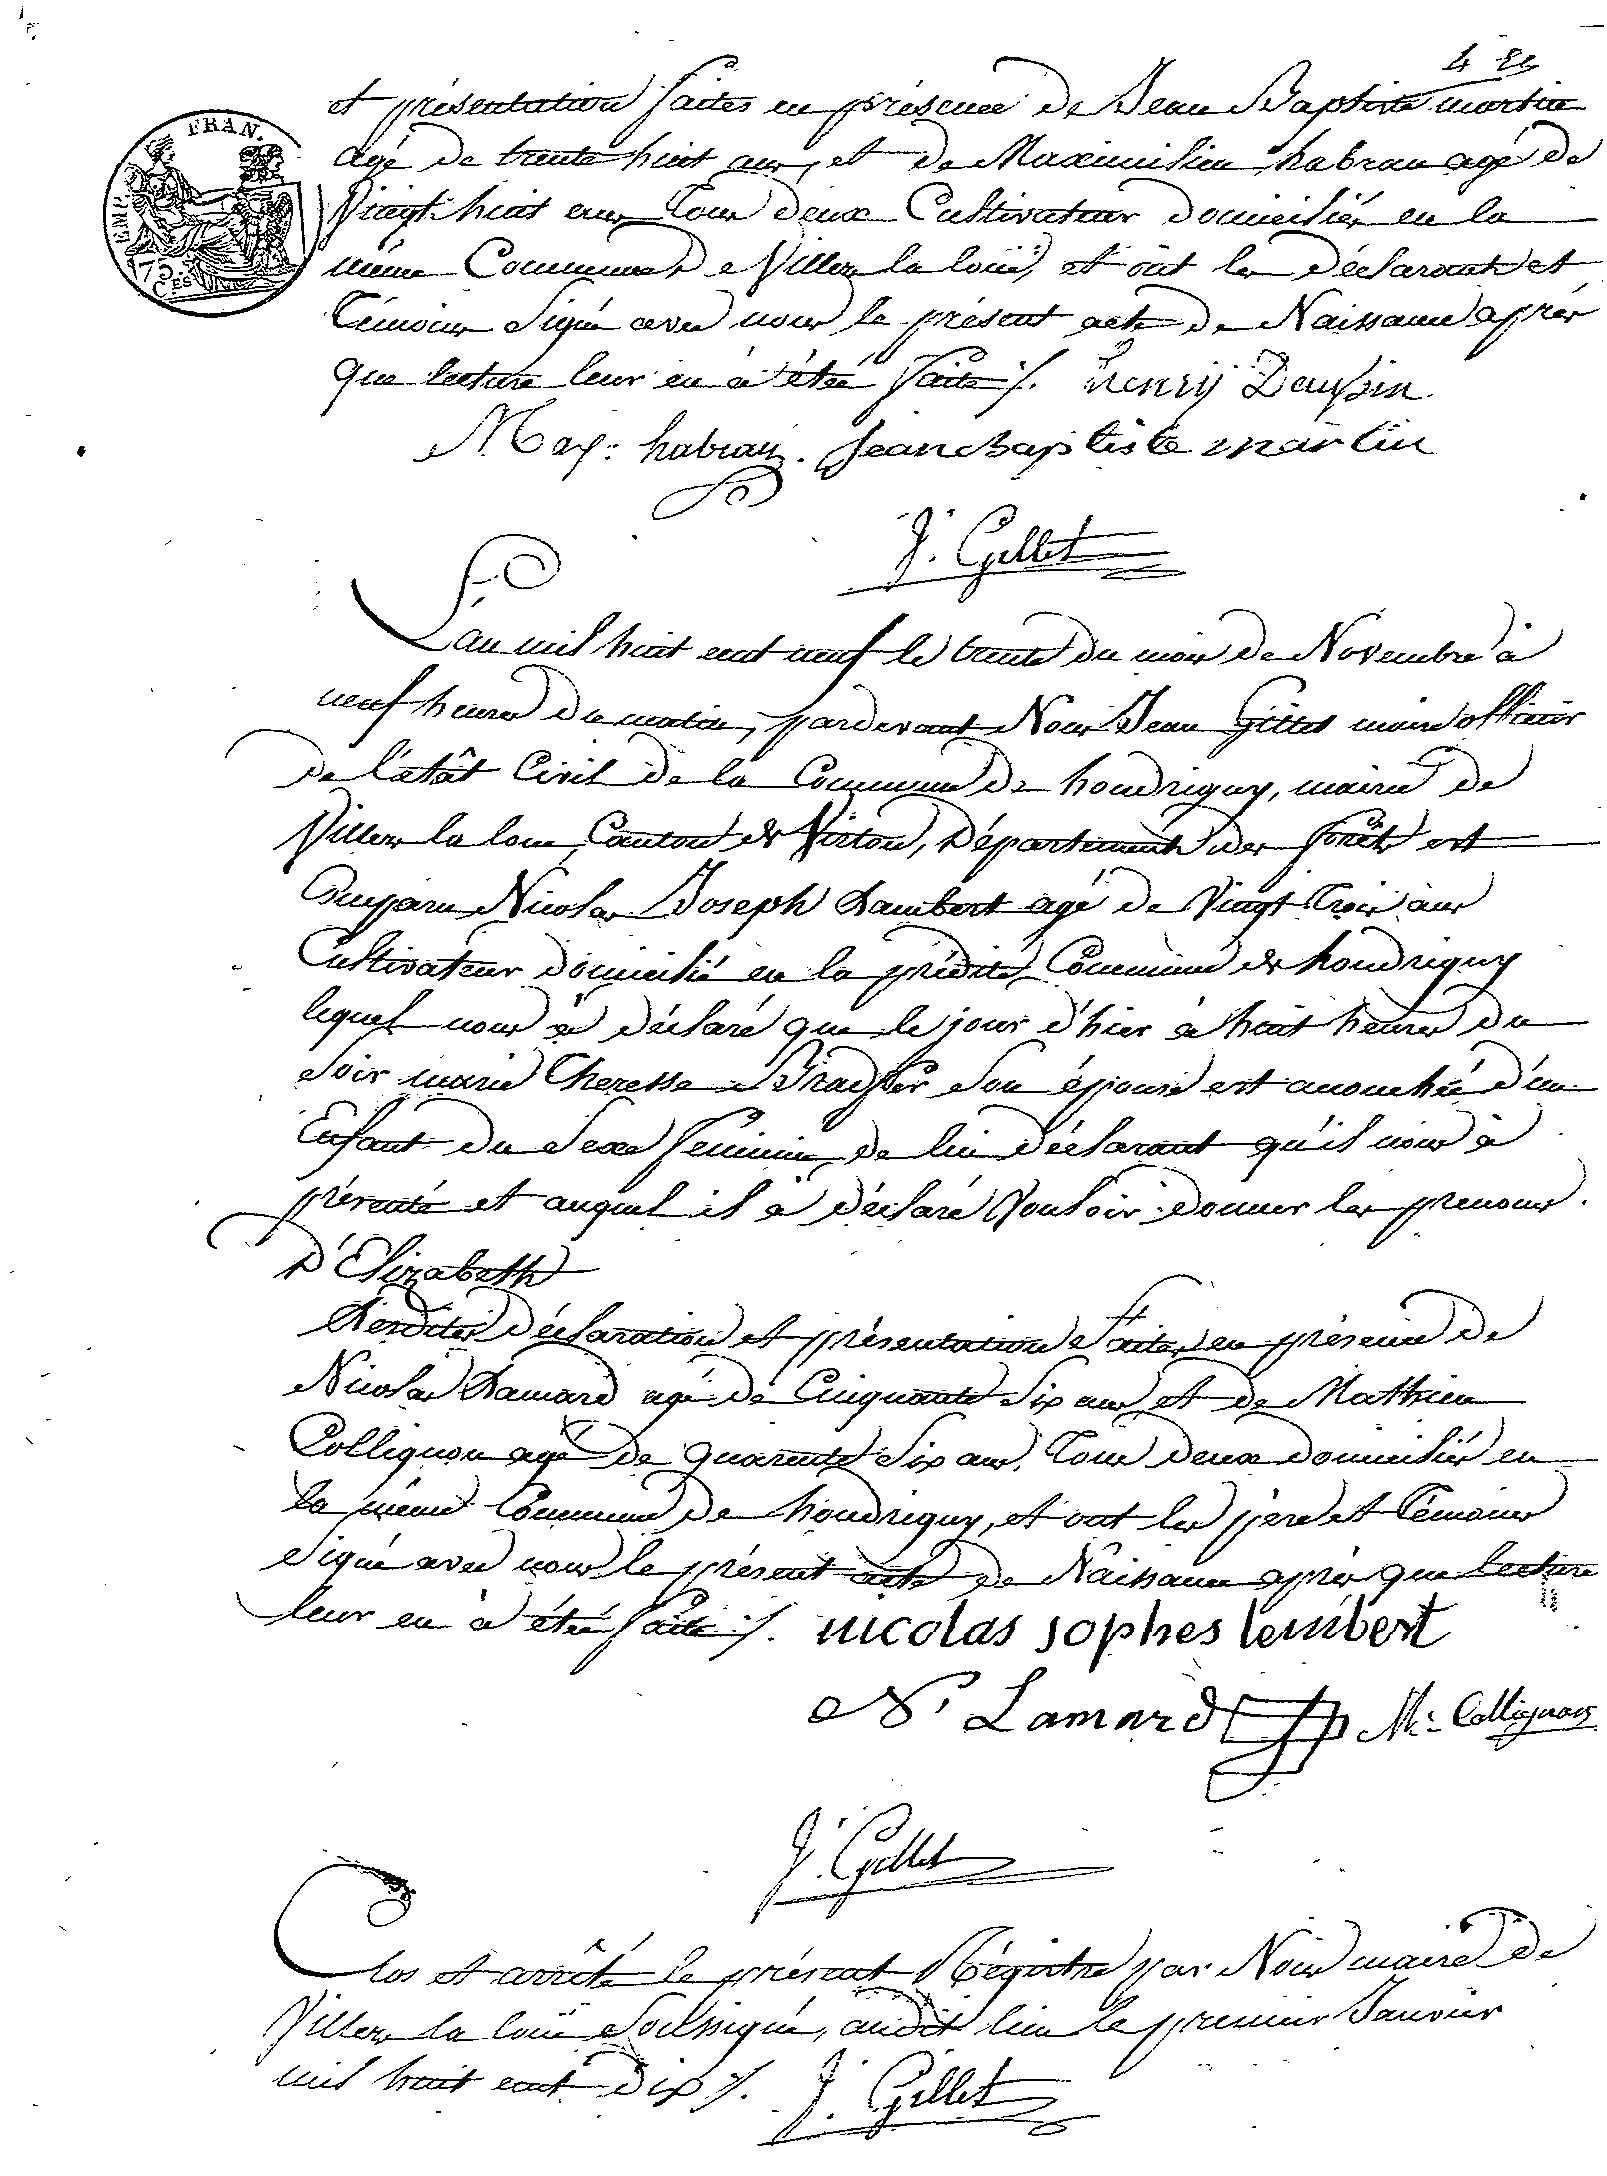 et présentation faites en présence de Jean Baptiste martin
FRAN.
EMP.
75.
CES
agé de trente huit ans, et de Maximilien habran agé de
Vingt huit ans Tous deux Cultivateur domiciliés en la
même Commune de Villers la loüe, et ont les Déclarant et
Témoins Signé avec nous le présent acte de Naissance après
que lecture leur en à été faite ./. henry Dauphin
Max: habran. Jean Baptiste martin
J. Gillet
L'an mil huit cent neuf le trente du mois de Novembre à
neuf heures du matin, pardevant Nous Jean Gillet maire officier
de l'etât Civil de la Commune de houdrigny, mairie de
Villers la loue Canton de Virton, Département des forêts est
Comparu Nicolas Joseph Lambert agé de Vingt Trois ans
Cultivateur domicilié en la prédite Commune de houdrigny
lequel nous à déclaré que le jour d'hier à huit heures du
Soir marie Theresse Son épouse est accouchée d'un
Enfant du Sexe feminin de lui déclarant qu'il nous à
présenté et auquel il à déclaré Vouloir donner les prenoms
D'Elizabeth
Lesdites Déclaration et présentation Faites en présence de
Nicolas Lamard agé de Cinquante Six ans et de Mathieu
Collignon agé de quarente Six ans, Tous deux domiciliés en
la même Commune de houdrigny, et ont les père et Témoins
Signé avec nous le présent acte de Naissance après que lecture
leur en à été faite ./. nicolas sophes lembert
N. Lamard M: Collignon
J. Gillet
Clos et arrêté le présent Régistre par Nous maire de
Villers la loüe Soussigné, audit lieu le premier Janvier
mil huit cent dix ./. J. Gillet